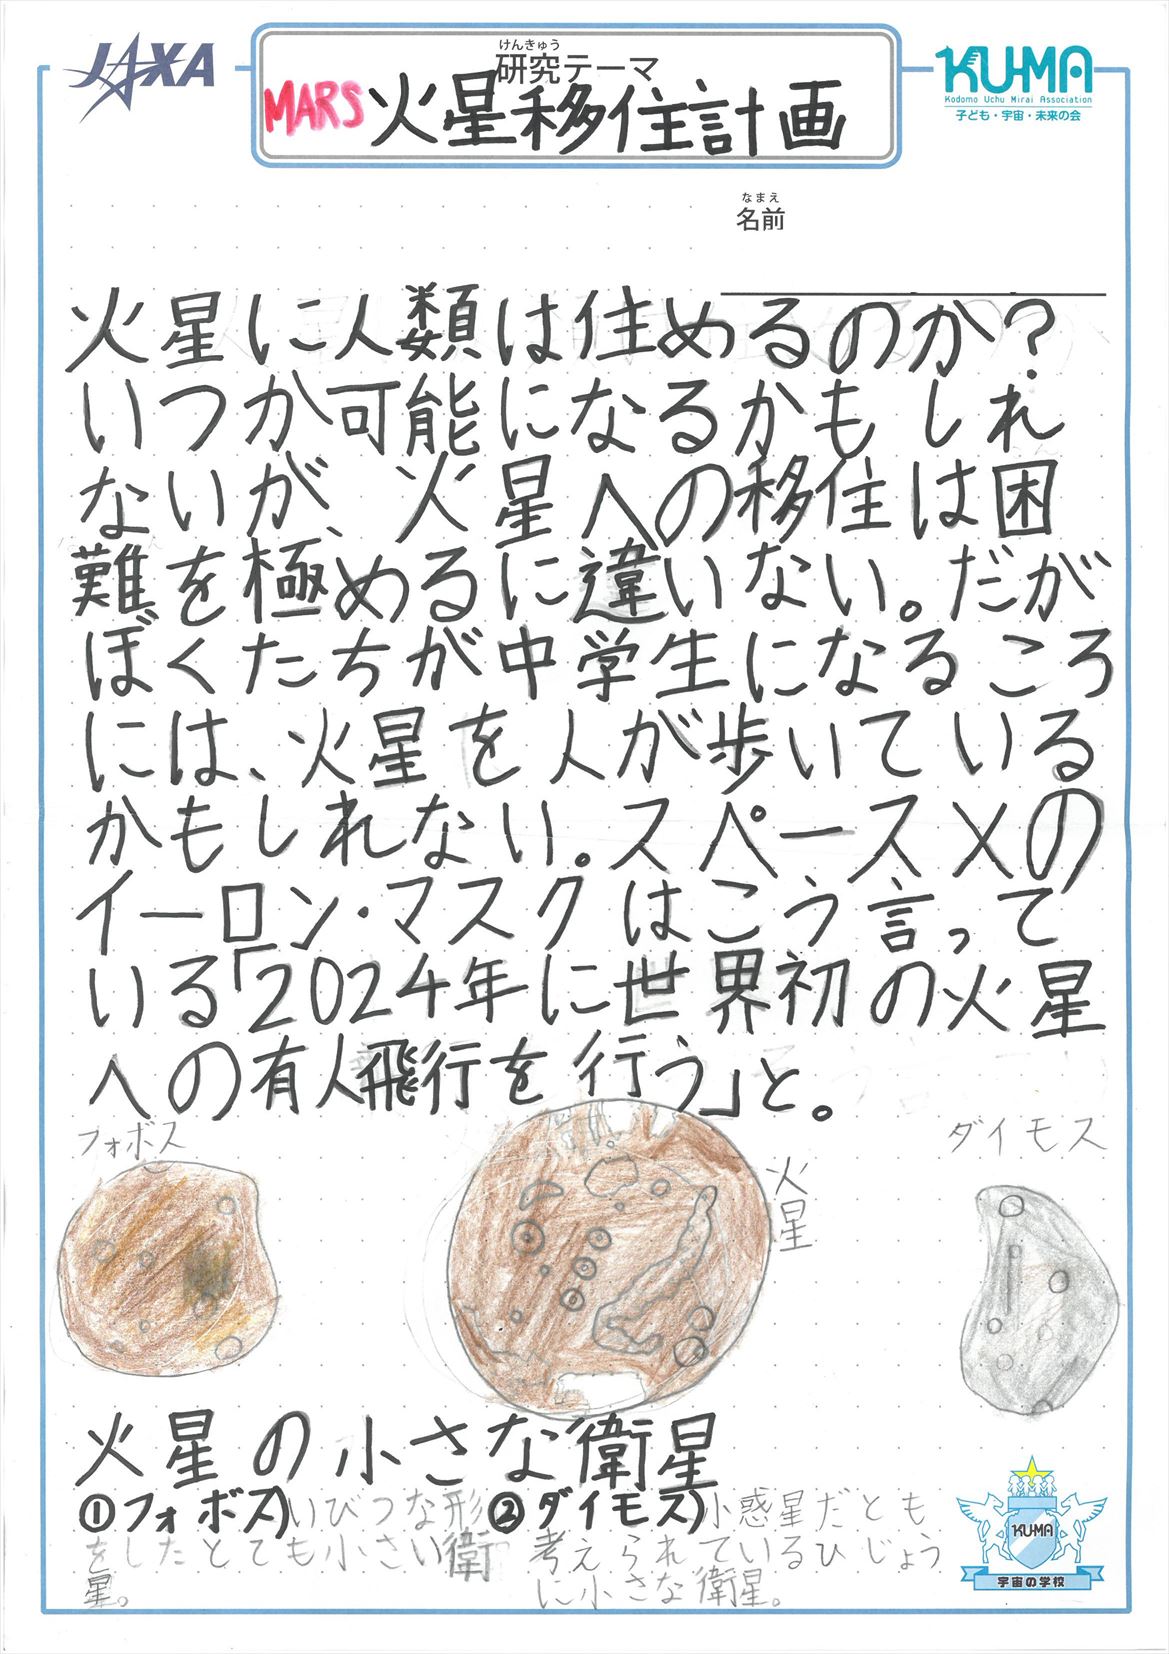 JAXA
けんきゅう
研究テーマ
KU-MA
Kodomo Uchu Mirai Association
子ども・宇宙・未来の会
MARS 火星移住計画
なまえ
名前
火星に人類は住めるのか?
いつか可能になるかもしれ
ないが、火星への移住は困
難を極めるに違いない。だが
ぼくたちが中学生になるころ
には、火星を人が歩いている
かもしれない。スペースXの
イーロン・マスクはこう言って
いる「2024年に世界初の火星
への有人飛行を行う」と。
フォボス
火星
ダイモス
火星の小さな衛星
①フォボス)いびつな形
をしたとても小さい衛
星。
②ダイモス)小惑星だとも
考えられているひじょう
に小さな衛星。
KU-MA
宇宙の学校